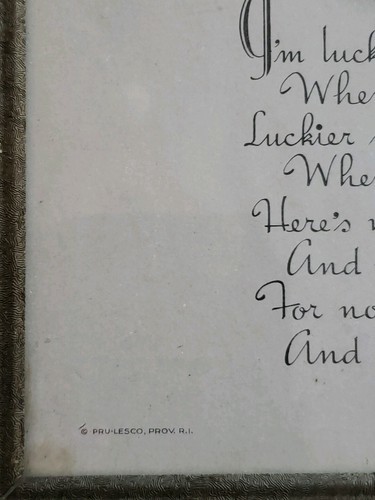 I'm luck
Whe
Luckier
Whe
Here's
And
For no
And
© PRU-LESCO, PROV. R.I.